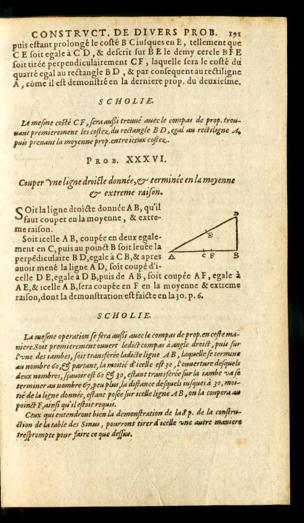 CONSTRVCT. DE DIVERS PROB. 191
puis estant prolongé le costé B C iusques en E, tellement que
C E soit egale à C D, & descrit sur B E le demy cercle B F E
soit tirée perpendiculairement C F, laquelle sera le costé du
quarré egal au rectangle B D, & par consequent au rectiligne
A, cõme il est demonstré en la derniere prop. du deuxiesme.
SCHOLIE.
Le mesme costé C F, sera aussi trouvé avec le compas de prop. trou-
vant premierement les costez du rectangle B D, egal au rectiligne A,
puis prenant la moyenne prop. entre iceux costez.
PROB. XXXVI.
Couper vne ligne droicte donnée, & terminée en la moyenne
& extreme raison.
SOit la ligne droicte donnée A B, qu'il
faut couper en la moyenne, & extre-
me raison.
Soit icelle A B, coupée en deux egale-
ment en C, puis au poinct B soit leuée la
perpédiculaire B D, egale à C B, & apres
auoir mené la ligne A D, soit coupé d'i-
celle D E, egale à D B, puis de A B, soit coupée A F, egale à
A E, & icelle A B, sera coupée en F en la moyenne & extreme
raison, dont la demonstration est faicte en la 30. p. 6.
D
E
A C F B
SCHOLIE.
La mesme operation se fera aussi avec le compas de prop. en ceste ma-
niere. Soit premierement ouvert ledict compas à angle droict, puis sur
l'vne des iambes, soit transferée ladicte ligne A B, laquelle se termine
au nombre 60, & partant, la moitié d'icelle est 30, l'ouverture desquels
deux nombres, sçavoir est 60 & 30, estant transferée sur la iambe va se
terminer au nombre 67, peu plus, la distance desquels iusques à 30, moi-
tié de la ligne donnée, estant posée sur icelle ligne A B, on la coupera au
poinct F, ainsi qu'il estoit requis.
Ceux qui entendront bien la demonstration de la 8 p. de la constru-
ction de la table des Sinus, pourront tirer d'icelle vne autre maniere
tresprompte pour faire ce que dessus.